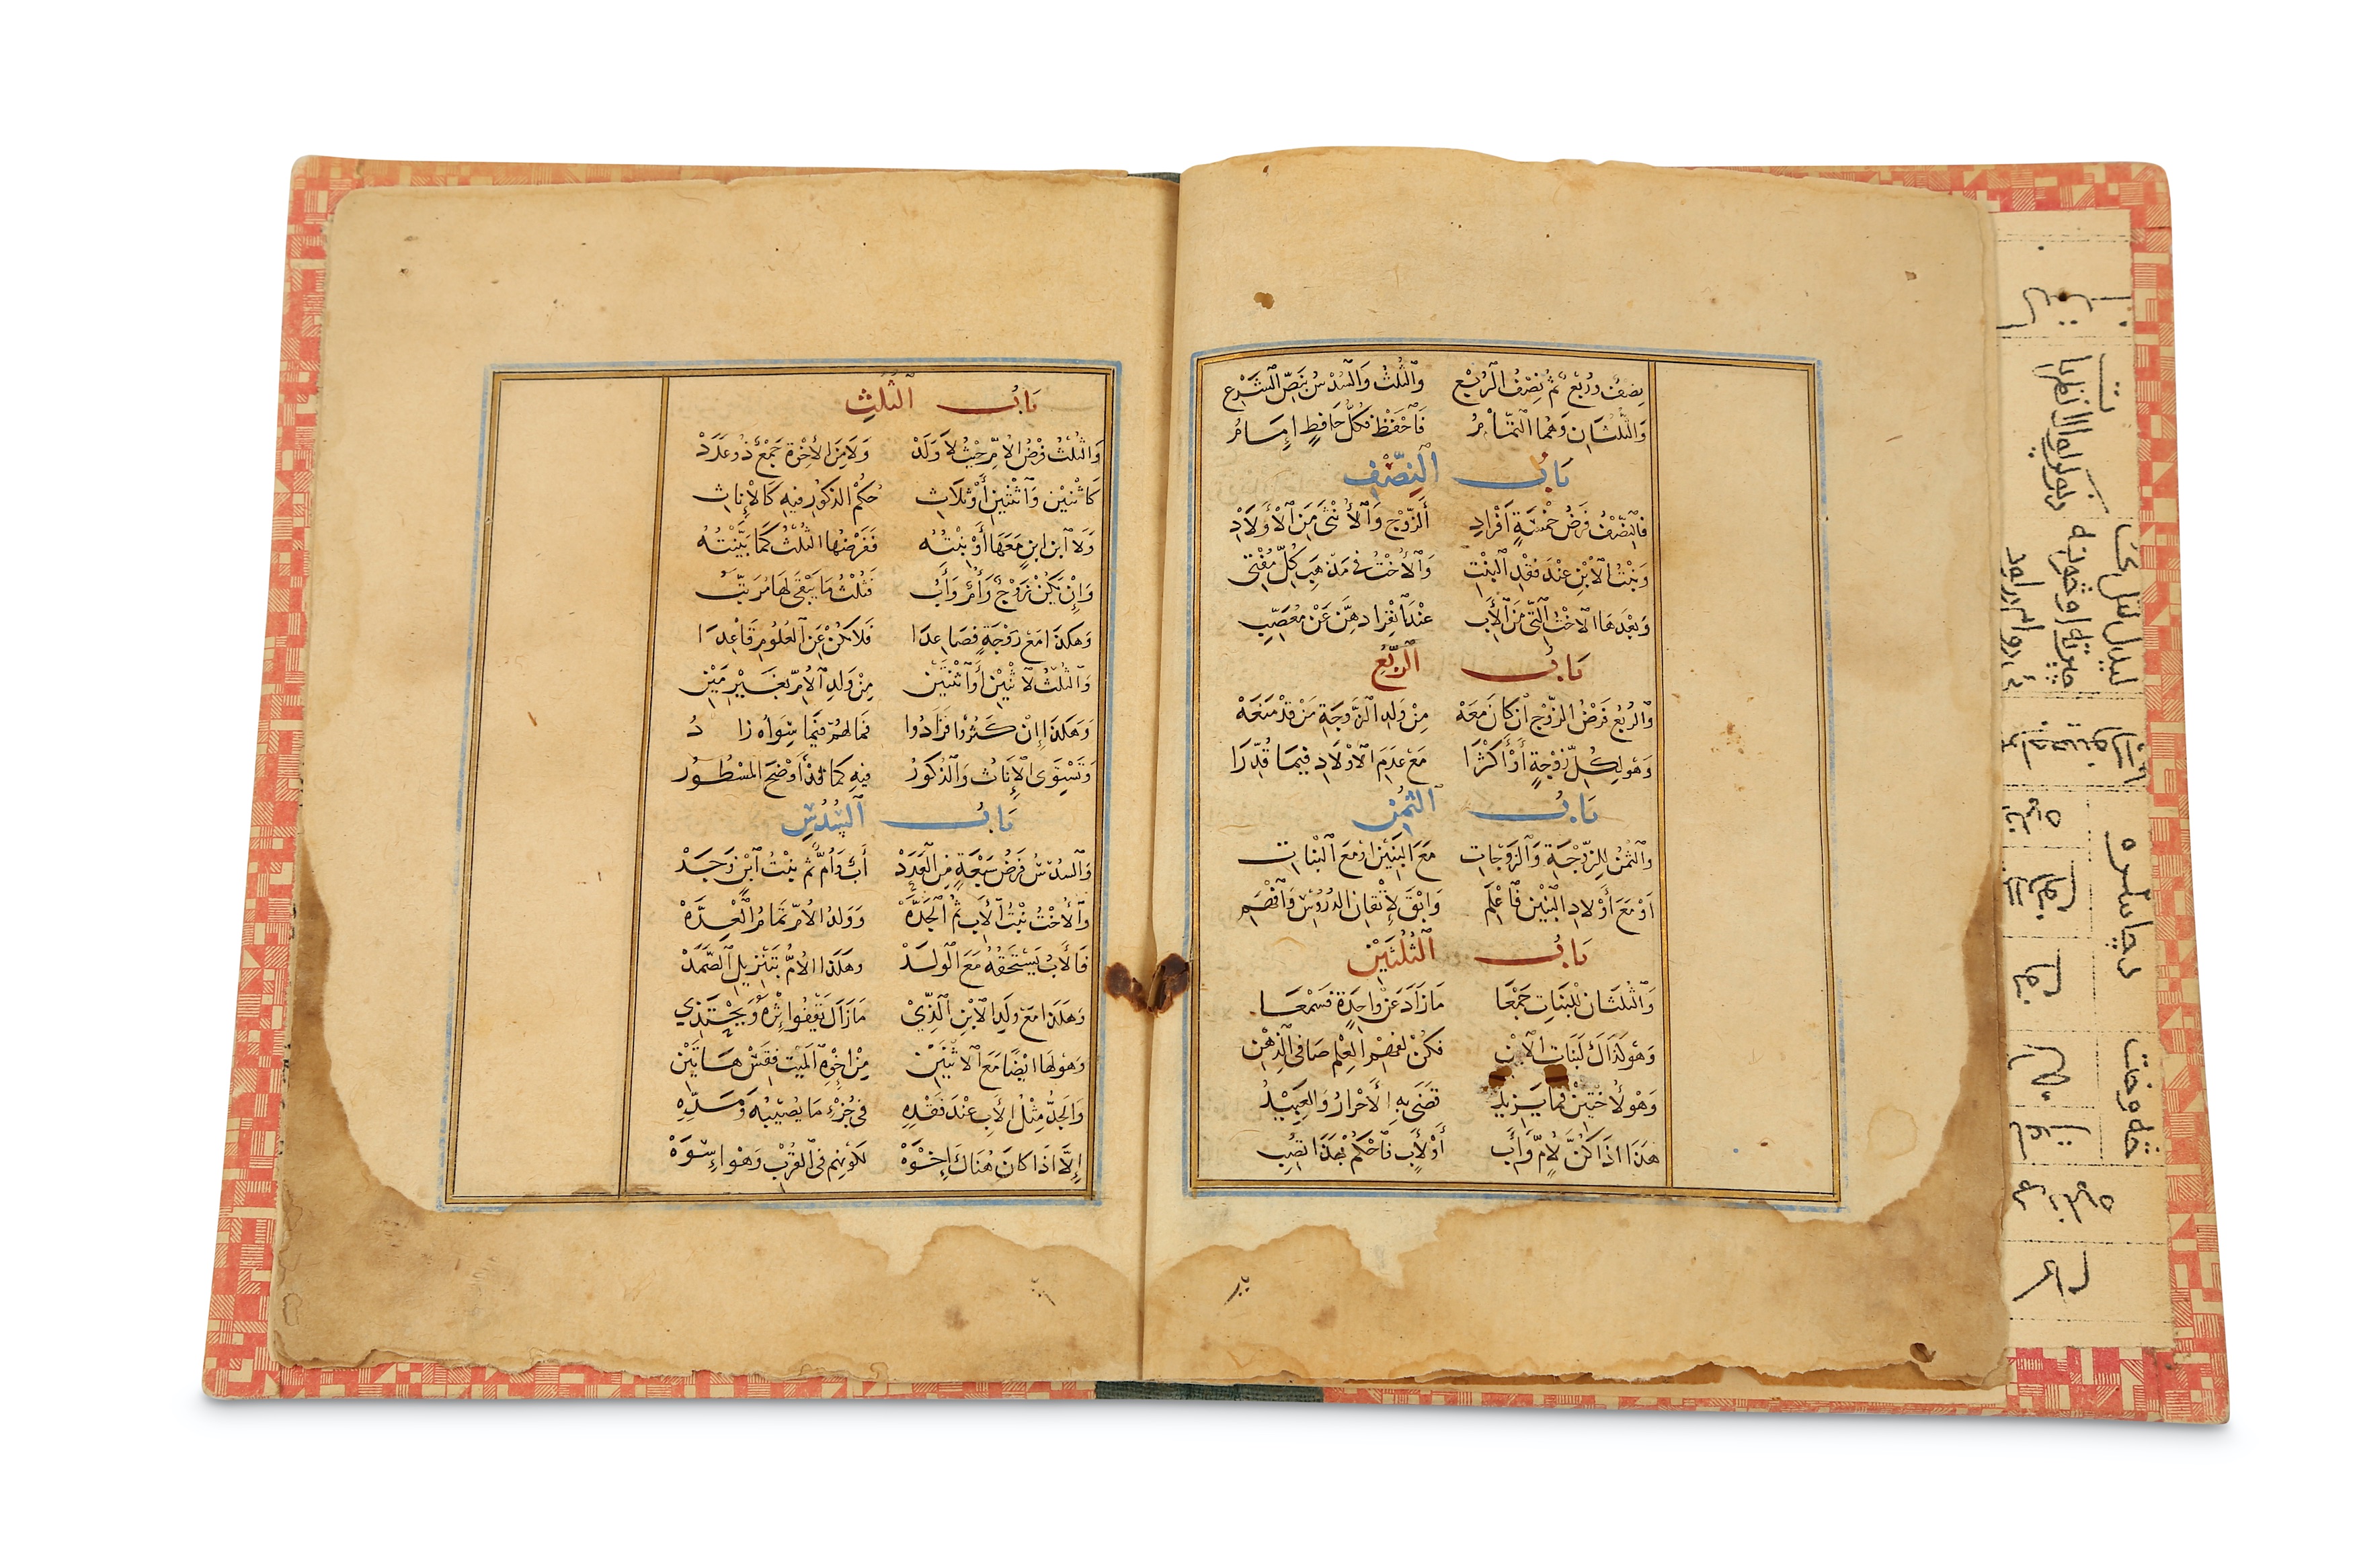 نِصْفٌ وَرُبْعٌ ثُمَّ نِصْفُ الرُّبْعِ وَالثُّلْثُ وَالسُّدْسُ بِنَصِّ الشَّرْعِ
وَالثُّلُثَانِ وَهُمَا التَّمَامُ فَاحْفَظْ فَكُلُّ حَافِظٍ إِمَامُ
بَابُ النِّصْفِ
فَالنِّصْفُ فَرْضُ خَمْسَةٍ أَفْرَادِ الزَّوْجِ وَالأُنْثَى مِنَ الأَوْلَادِ
وَبِنْتُ الاِبْنِ عِنْدَ فَقْدِ الْبِنْتِ وَالأُخْتُ فِي مَذْهَبِ كُلِّ مُفْتِي
وَبَعْدَهَا الأُخْتُ الَّتِي مِنَ الأَبِ عِنْدَ انْفِرَادِهِنَّ عَنْ مُعَصِّبِ
بَابُ الرُّبْعِ
وَالرُّبْعُ فَرْضُ الزَّوْجِ إِنْ كَانَ مَعَهْ مِنْ وَلَدِ الزَّوْجَةِ مَنْ قَدْ مَنَعَهْ
وَهُوَ لِكُلِّ زَوْجَةٍ أَوْ أَكْثَرَا مَعْ عَدَمِ الأَوْلَادِ فِيمَا قُدِّرَا
بَابُ الثُّمْنِ
وَالثُّمْنُ لِلزَّوْجَةِ وَالزَّوْجَاتِ مَعَ الْبَنِينَ أَوْ مَعَ الْبَنَاتِ
أَوْ مَعَ أَوْلَادِ الْبَنِينَ فَاعْلَمِ وَابْقَ لِإِتْقَانِ الدُّرُوسِ وَافْهَمِ
بَابُ الثُّلُثَيْنِ
وَالثُّلُثَانِ لِلْبَنَاتِ جَمْعَا مَا زَادَ عَنْ وَاحِدَةٍ فَسَمْعَا
وَهُوَ كَذَاكَ لِبَنَاتِ الاِبْنِ فَكُنْ لِفَهْمِ الْعِلْمِ صَافِي الذِّهْنِ
وَهُوَ لِأُخْتَيْنِ فَمَا يَزِيدُ قَضَى بِهِ الأَحْرَارُ وَالْعَبِيدُ
هَذَا إِذَا كُنَّ لِأُمٍّ وَأَبِ أَوْ لِأَبٍ فَاحْكُمْ بِهَذَا تُصِبِ
بَابُ الثُّلُثِ
وَالثُّلْثُ فَرْضُ الأُمِّ حَيْثُ لَا وَلَدْ وَلَا مِنَ الإِخْوَةِ جَمْعٌ ذُو عَدَدْ
كَاثْنَيْنِ وَاثْنَتَيْنِ أَوْ ثَلَاثِ حُكْمُ الذُّكُورِ فِيهِ كَالإِنَاثِ
وَلَا ابْنُ ابْنٍ مَعَهَا أَوْ بِنْتُهُ فَفَرْضُهَا الثُّلْثُ كَمَا بَيَّنْتُهُ
وَإِنْ يَكُنْ زَوْجٌ وَأُمٌّ وَأَبُ فَثُلْثُ مَا يَبْقَى لَهَا مُرَتَّبُ
وَهَكَذَا مَعْ زَوْجَةٍ فَصَاعِدَا فَلَا تَكُنْ عَنِ الْعُلُومِ قَاعِدَا
وَالثُّلْثُ لِاثْنَيْنِ أَوِ اثْنَتَيْنِ مِنْ وَلَدِ الأُمِّ بِغَيْرِ مَيْنِ
وَهَكَذَا إِنْ كَثُرُوا فَزَادُوا فَمَا لَهُمْ فِيمَا سِوَاهُ زَا دُ
وَتَسْتَوِي الإِنَاثُ وَالذُّكُورُ فِيهِ كَمَا قَدْ أَوْضَحَ الْمَسْطُورُ
بَابُ السُّدُسِ
وَالسُّدْسُ فَرْضُ سَبْعَةٍ مِنَ الْعَدَدْ أَبٌ وَأُمٌّ ثُمَّ بِنْتُ ابْنٍ وَجَدْ
وَالأُخْتُ بِنْتُ الأَبِ ثُمَّ الْجَدَّهْ وَوَلَدُ الأُمِّ تَمَامُ الْعِدَّهْ
فَالأَبُ يَسْتَحِقُّهُ مَعَ الْوَلَدْ وَهَكَذَا الأُمُّ بِتَنْزِيلِ الصَّمَدْ
وَهَكَذَا مَعْ وَلَدِ الاِبْنِ الَّذِي مَا زَالَ يَقْفُو إِثْرَهُ وَيَحْتَذِي
وَهُوَ لَهَا أَيْضًا مَعَ الاِثْنَيْنِ مِنْ إِخْوَةِ الْمَيْتِ فَقِسْ هَاتَيْنِ
وَالْجَدُّ مِثْلُ الأَبِ عِنْدَ فَقْدِهِ فِي جُزْءِ مَا يُصِيبُهُ وَمَدِّهِ
إِلَّا إِذَا كَانَ هُنَاكَ إِخْوَهْ لِكَوْنِهِمْ فِي الْقُرْبِ وَهْوَ إِسْوَهْ